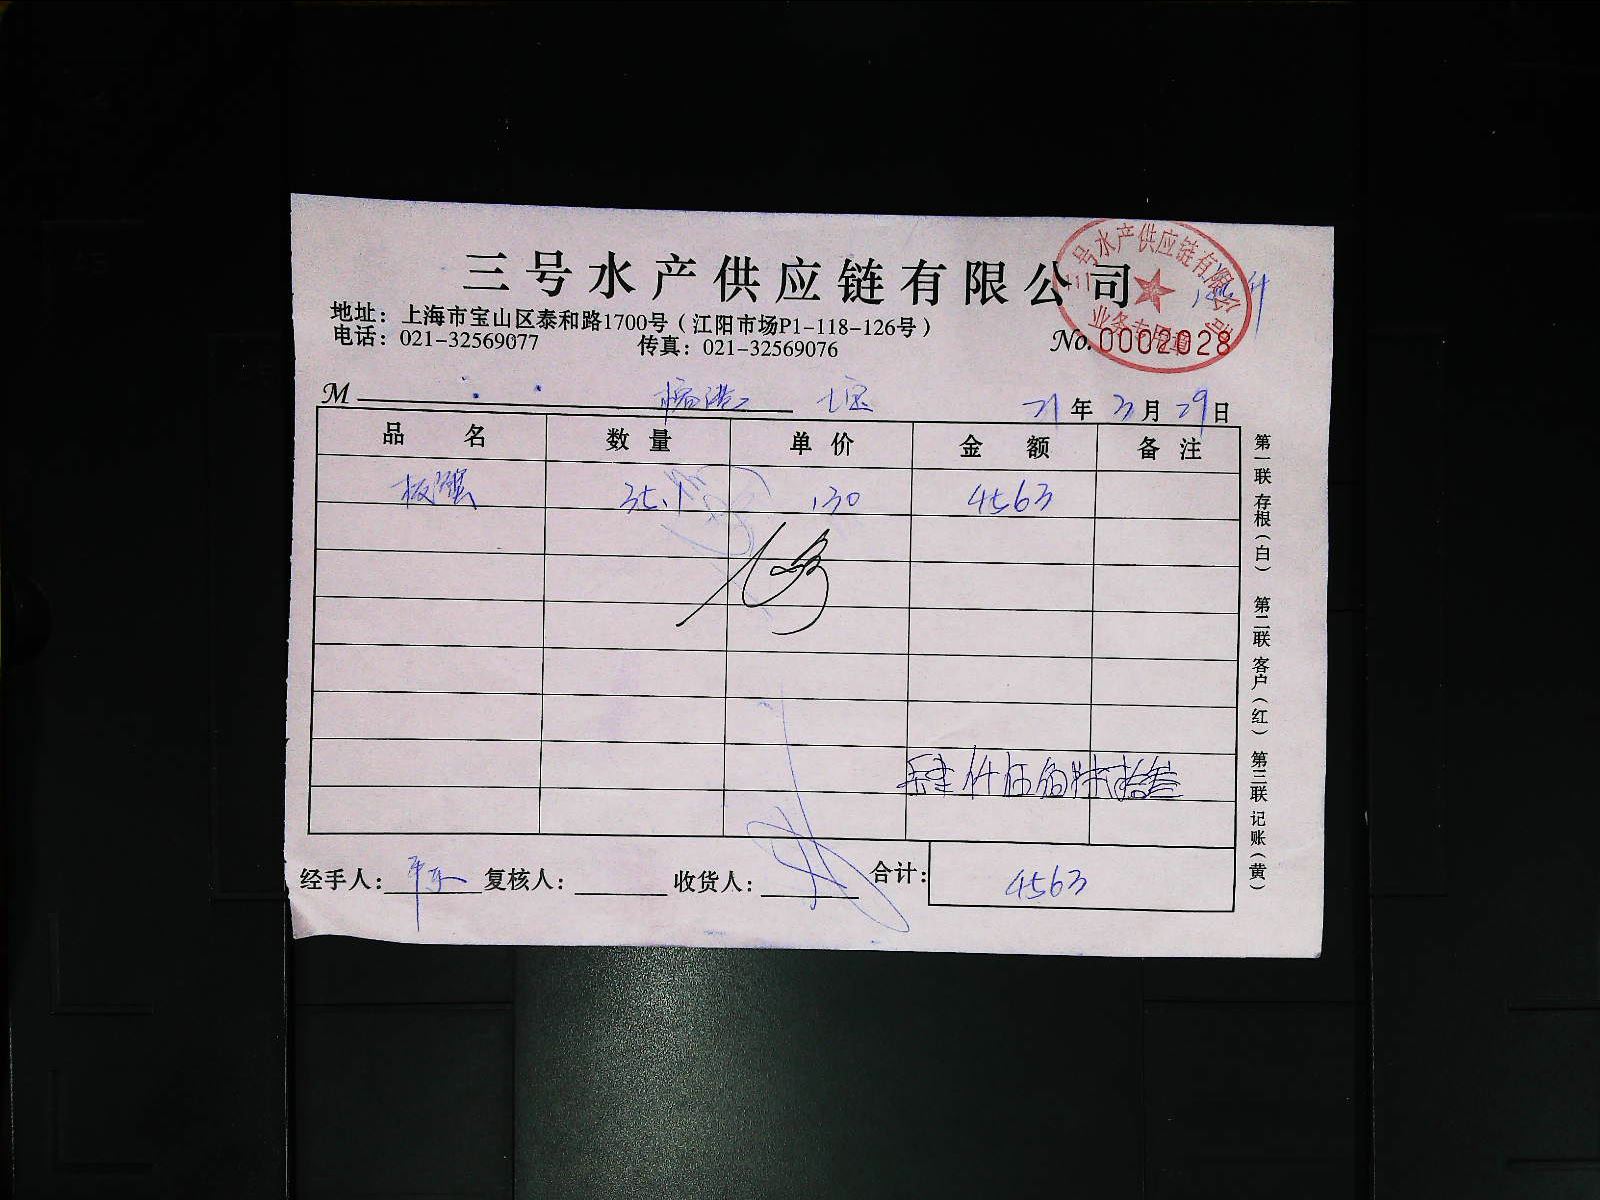 三号水产供应链有限公司
地址：上海市宝山区泰和路1700号（江阳市场P1-118-126号）
电话：021-32569077 传真：021-32569076
No.0002028
三号水产供应链有限公司
业务专用章
M 21年3月29日
品名 数量 单价 金额 备注
35.1 130 4563
肆仟伍佰陆拾叁
经手人： 复核人： 收货人： 合计： 4563
第一联 存根（白） 第二联 客户（红） 第三联 记账（黄）